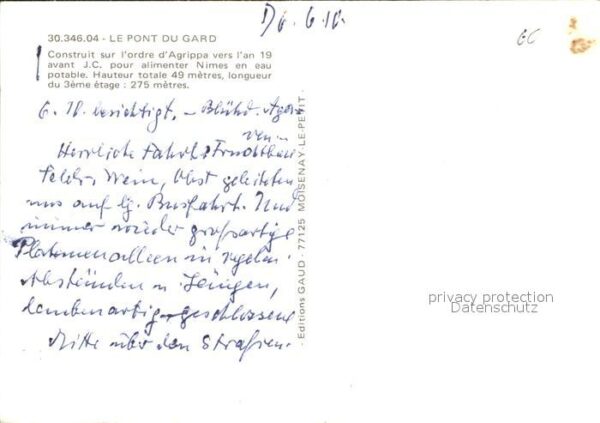 Do. 6.10.
30.346.04 - LE PONT DU GARD
Construit sur l'ordre d'Agrippa vers l'an 19
avant J.C. pour alimenter Nimes en eau
potable. Hauteur totale 49 mètres, longueur
du 3ème étage : 275 mètres.
6. 10. besichtigt. - Blühd. Aga-
ven -
Herrliche Fahrt. Fruchtbare
Felder, Wein, Obst geleiteten
uns auf lg. Busfahrt. Und
immer wieder großartige
Platanenalleen in regelm.
Abständen u. Längen,
laubenartig geschlossene
Mitte über den Straßen.
- Editions GAUD - 77125 MOISENAY-LE-PETIT -
privacy protection
Datenschutz